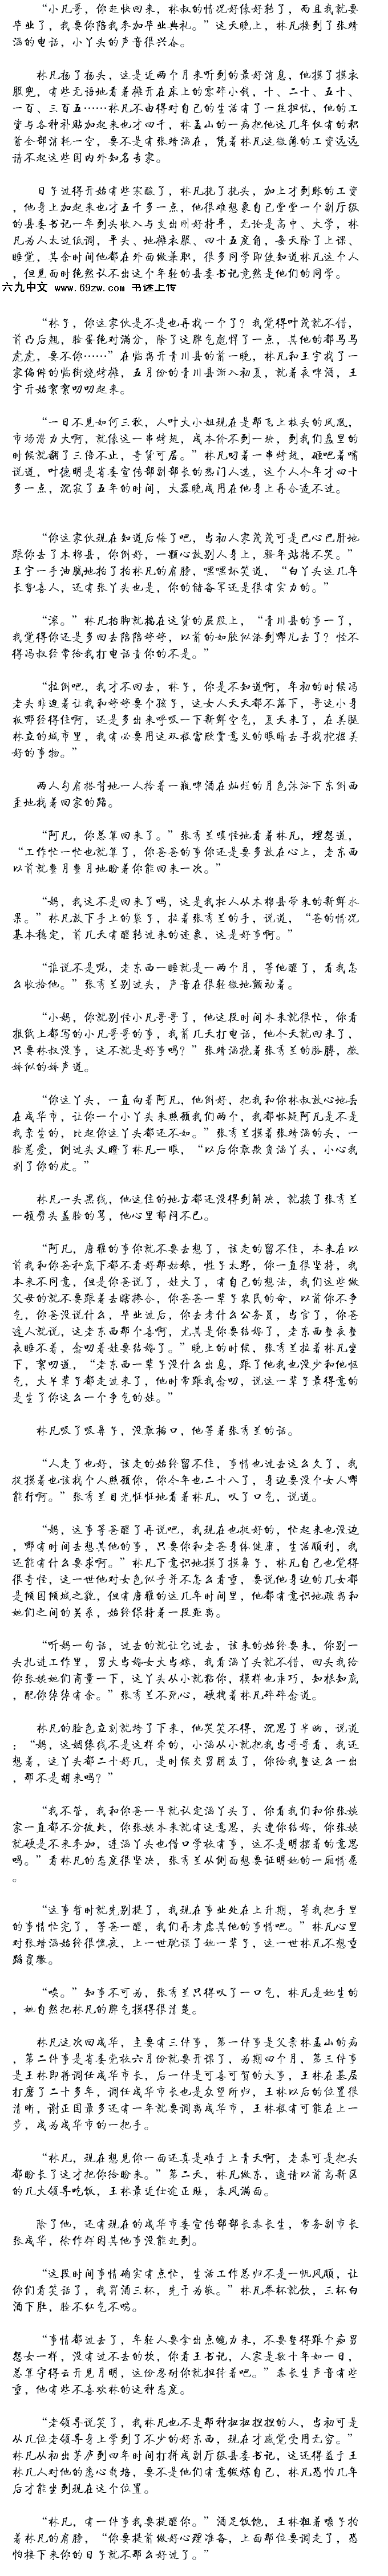 “小凡哥，你赶快回来，林叔的情况好像好转了，而且我就要
毕业了，我要你陪我参加毕业典礼。”这天晚上，林凡接到了张靖
涵的电话，小丫头的声音很兴奋。
林凡扬了扬头，这是近两个月来听到的最好消息，他摸了摸衣
服兜，有些无语地看着摊开在床上的零碎小钱，十、二十、五十、
一百、三百五……林凡不由得对自己的生活有了一丝担忧，他的工
资与各种补贴加起来也才四千，林孟山的一病把他这几年仅有的积
蓄全部消耗一空，要不是有张靖涵在，凭着林凡这微薄的工资远远
请不起这些国内外知名专家。
日子过得开始有些寒酸了，林凡挠了挠头，加上才到账的工资
，他身上加起来也才五千多一点，他很难想象自己堂堂一个副厅级
的县委书记一年到头收入与支出刚好持平，无论是高中、大学，林
凡为人太过低调，平头、地摊衣服、四十五度角，每天除了上课、
睡觉，其余时间他都在外面做兼职，很多同学即使知道林凡这个人
，但见面时绝然认不出这个年轻的县委书记竟然是他们的同学。
六九中文 www.69zw.com 书迷上传
“林子，你这家伙是不是也再找一个了？我觉得叶茂就不错，
前凸后翘，脸蛋绝对满分，除了这脾气彪悍了一点，其他的都马马
虎虎，要不你……”在临离开青川县的前一晚，林凡和王宇找了一
家偏僻的临街烧烤摊，五月份的青川县渐入初夏，就着夜啤酒，王
宇开始絮絮叨叨起来。
“一日不见如何三秋，人叶大小姐现在是那飞上枝头的凤凰，
市场潜力大啊，就像这一串烤翅，成本价不到一块，到我们盘里的
时候就翻了三倍不止，奇货可居。”林凡叼着一串烤翅，砸吧着嘴
说道，叶德明是省委宣传部副部长的热门人选，这个人今年才四十
多一点，沉寂了五年的时间，大器晚成用在他身上再合适不过。
“你这家伙现在知道后悔了吧，当初人家茂茂可是巴心巴肝地
跟你去了木棉县，你倒好，一颗心放别人身上，骑车站指不哭。”
王宇一手油腻地拍了拍林凡的肩膀，嘿嘿坏笑道，“白丫头这几年
长势喜人，还有张丫头也是，你的储备军还是很有实力的。”
“滚。”林凡抬脚就揣在这货的屁股上，“青川县的事一了，
我觉得你还是多回去陪陪婷婷，以前的如胶似漆到哪儿去了？怪不
得冯叔经常给我打电话责你的不是。”
“拉倒吧，我才不回去，林子，你是不知道啊，年初的时候冯
老头非逼着让我和婷婷要个孩子，这女人天天都不落下，哥这小身
板哪经得住啊，还是多出来呼吸一下新鲜空气，夏天来了，在美腿
林立的城市里，我有必要用这双极富欣赏意义的眼睛去寻找挖掘美
好的事物。”
两人勾肩搭背地一人拎着一瓶啤酒在灿烂的月色沐浴下东倒西
歪地找着回家的路。
“阿凡，你总算回来了。”张秀兰嗔怪地看着林凡，埋怨道，
“工作忙一忙也就算了，你爸爸的事你还是要多放在心上，老东西
以前就整月整月地盼着你能回来一次。”
“妈，我这不是回来了吗，这是我托人从木棉县带来的新鲜水
果。”林凡放下手上的袋子，拉着张秀兰的手，说道，“爸的情况
基本稳定，前几天有醒转过来的迹象，这是好事啊。”
“谁说不是呢，老东西一睡就是一两个月，等他醒了，看我怎
么收拾他。”张秀兰别过头，声音在很轻微地颤动着。
“小妈，你就别怪小凡哥哥了，他这段时间本来就很忙，你看
报纸上都写的小凡哥哥的事，我前几天打电话，他今天就回来了，
只要林叔没事，这不就是好事吗？”张靖涵挽着张秀兰的胳膊，撒
娇似的娇声道。
“你这丫头，一直向着阿凡，他倒好，把我和你林叔放心地丢
在成华市，让你一个小丫头来照顾我们两个，我都怀疑阿凡是不是
我亲生的，比起你这丫头都还不如。”张秀兰摸着张靖涵的头，一
脸惹爱，侧过头又瞪了林凡一眼，“以后你敢欺负涵丫头，小心我
剥了你的皮。”
林凡一头黑线，他这住的地方都还没得到解决，就挨了张秀兰
一顿劈头盖脸的骂，他心里郁闷不已。
“阿凡，唐雅的事你就不要去想了，该走的留不住，本来在以
前我和你爸私底下都不看好那姑娘，性子太野，你一直很坚持，我
本来不同意，但是你爸说了，娃大了，有自己的想法，我们这些做
父母的就不要跟着去瞎掺合，你爸爸一辈子农民的命，以前你不争
气，你爸没说什么，毕业过后，你去考什么公务員，当官了，你爸
逢人就说，这老东西那个喜啊，尤其是你要结婚了，老东西整夜整
夜睡不着，念叨着娃要结婚了。”晚上的时候，张秀兰拉着林凡坐
下，絮叨道，“老东西一辈子没什么出息，跟了他我也没少和他怄
气，大半辈子都走过来了，他时常跟我念叨，说这一辈子最得意的
是生了你这么一个争气的娃。”
林凡吸了吸鼻子，没敢插口，他等着张秀兰的话。
“人走了也好，该走的始终留不住，事情也过去这么久了，我
捉摸着也该找个人照顾你，你今年也二十八了，身边要没个女人哪
能行啊。”张秀兰目光怔怔地看着林凡，叹了口气，说道。
“妈，这事等爸醒了再说吧，我现在也挺好的，忙起来也没边
，哪有时间去想其他的事，只要你和老爸身体健康，生活顺利，我
还能有什么要求啊。”林凡下意识地摸了摸鼻子，林凡自己也觉得
很奇怪，这一世他对女色似乎并不怎么看重，要说他身边的几女都
是倾国倾城之貌，但有唐雅的这几年时间里，他都有意识地疏离和
她们之间的关系，始终保持着一段距离。
“听妈一句话，过去的就让它过去，该来的始终要来，你别一
头扎进工作里，男大当婚女大当嫁，我看涵丫头就不错，回头我给
你张姨她们商量一下，这丫头从小就粘你，模样也乖巧，知根知底
，配你绰绰有余。”张秀兰不死心，硬拽着林凡碎碎念道。
林凡的脸色立刻就垮了下来，他哭笑不得，沉思了半晌，说道
：“妈，这姻缘线不是这样牵的，小涵从小就把我当哥哥看，我还
想着，这丫头都二十好几，是时候交男朋友了，你给我整这么一出
，那不是胡来吗？”
“我不管，我和你爸一早就认定涵丫头了，你看我们和你张姨
家一直都不分彼此，你张姨本来就有这意思，头遭你结婚，你张姨
就硬是不来参加，连涵丫头也借口学校有事，这不是明摆着的意思
吗。”看林凡的态度很坚决，张秀兰从侧面想要证明她的一厢情愿
。
“这事暂时就先别提了，我现在事业处在上升期，等我把手里
的事情忙完了，等爸一醒，我们再考虑其他的事情吧。”林凡心里
对张靖涵始终很愧疚，上一世耽误了她一辈子，这一世林凡不想重
蹈覆辙。
“唉。”知事不可为，张秀兰只得叹了一口气，林凡是她生的
，她自然把林凡的脾气摸得很清楚。
林凡这次回成华，主要有三件事，第一件事是父亲林孟山的病
，第二件事是省委党校六月份就要开课了，为期四个月，第三件事
是王林即将调任成华市长，后一件是可喜可贺的大事，王林在基层
打磨了二十多年，调任成华市长也是众望所归，王林以后的位置很
清晰，谢正因最多还有一年就要调离成华市，王林极有可能在上一
步，成为成华市的一把手。
“林凡，现在想见你一面还真是难于上青天啊，老秦可是把头
都盼长了这才把你给盼来。”第二天，林凡做东，邀请以前高新区
的几大领导吃饭，王林最近仕途正旺，春风满面。
除了他，还有现在的成华市委宣传部部长秦长生，常务副市长
张成华，徐作群因其他事没能赶到。
“这段时间事情确实有点忙，生活工作总归不是一帆风顺，让
你们看笑话了，我罚酒三杯，先干为敬。”林凡举杯就饮，三杯白
酒下肚，脸不红气不喘。
“事情都过去了，年轻人要拿出点魄力来，不要整得跟个痴男
怨女一样，没有过不去的坎，你看王书记，人家是数十年如一日，
总算守得云开见月明，这份忍耐你就担待着吧。”秦长生声音有些
重，他有些不喜欢林的这种态度。
“老领导说笑了，我林凡也不是那种扭扭捏捏的人，当初可是
从几位老领导身上学到了不少的好东西，现在才感觉受用无穷。”
林凡从初出茅庐到四年时间打拼成副厅级县委书记，这还得益于王
林几人对他的悉心栽培，要不是他们有意锻炼自己，林凡恐怕几年
后才能坐到现在这个位置。
“林凡，有一件事我要提醒你。”酒足饭饱，王林粗着嗓子拍
着林凡的肩膀，“你要提前做好心理准备，上面那位要调走了，恐
怕接下来你的日子就不那么好过了。”